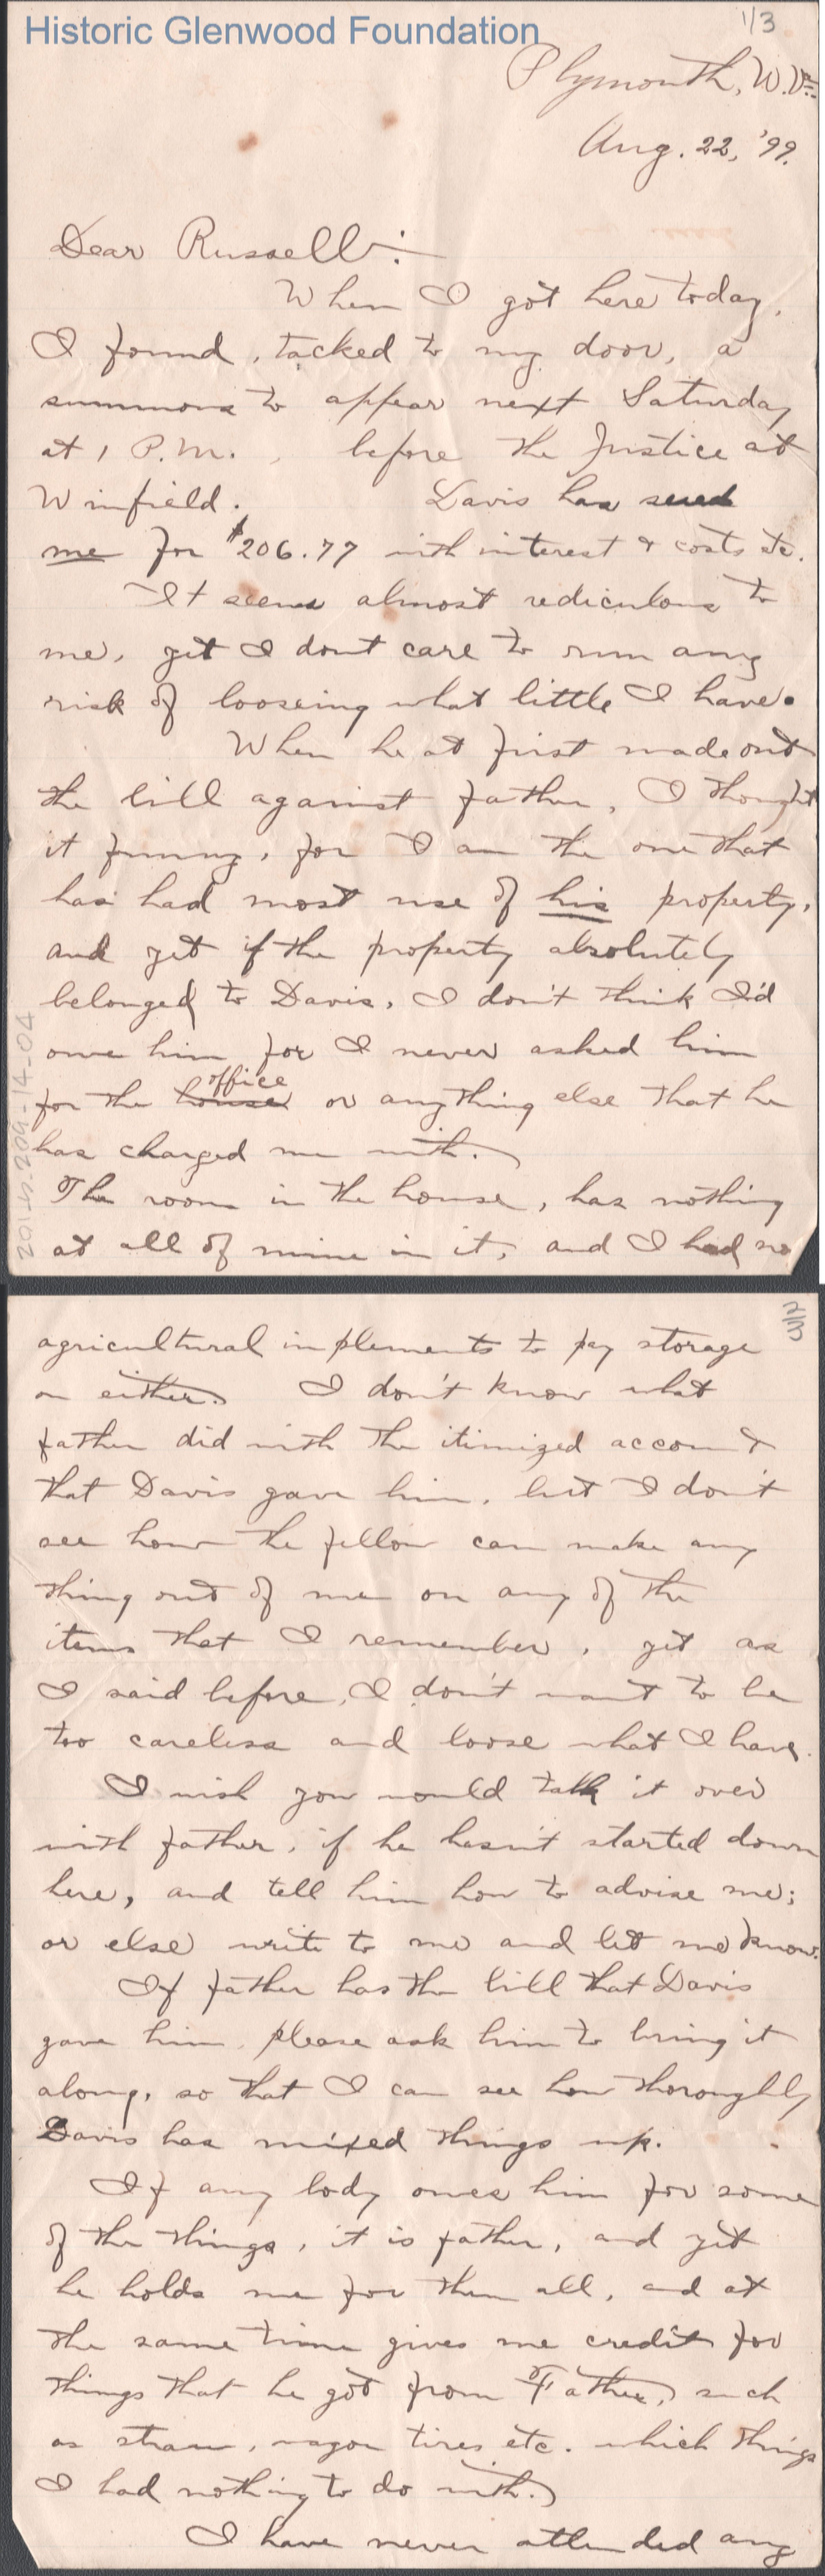 Historic Glenwood Foundation
1/3
Plymouth, W.Va.
Aug. 22, '99.
Dear Russell:
When I got here today,
I found, tacked to my door, a
summons to appear next Saturday
at 1 P.M., before the Justice at
Winfield. Davis has sued
me for $206.77 with interest & costs etc.
It seems almost rediculous to
me, yet I dont care to run any
risk of looseing what little I have.
When he at first made out
the bill against father, I thought
it funny, for I am the one that
has had most use of his property,
and yet if the property absolutely
belonged to Davis, I don't think I'd
owe him for I never asked him
office
for the house or anything else that he
has charged me with.
The room in the house, has nothing
at all of mine in it, and I had no
2014.209-14-04
2/3
agricultural implements to pay storage
on either. I don't know what
father did with the itimized account
that Davis gave him, but I don't
see how the fellow can make any
thing out of me on any of the
items that I remember, yet as
I said before, I don't want to be
too careless and loose what I have.
I wish you would talk it over
with father, if he hasn't started down
here, and tell him how to advise me;
or else write to me and let me know.
If father has the bill that Davis
gave him, please ask him to bring it
along, so that I can see how thoroughly
Davis has mixed things up.
If any body owes him for some
of the things, it is father, and yet
he holds me for them all, and at
the same time gives me credit for
things that he got from Father, such
as straw, wagon tires etc. which things
I had nothing to do with.
I have never attended any